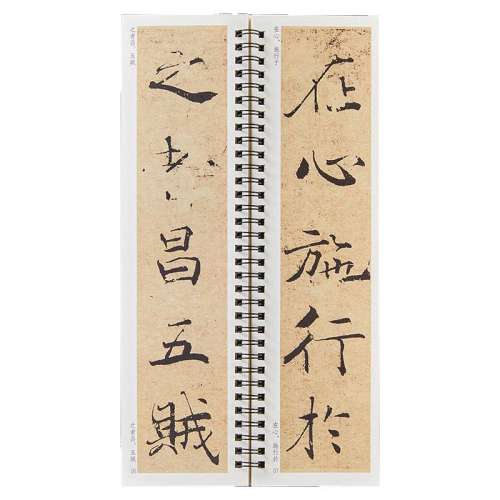 之者昌。五贼
之者昌五賊
之者昌。五賊 06
在心,施行于
在心施行於
在心,施行於 07